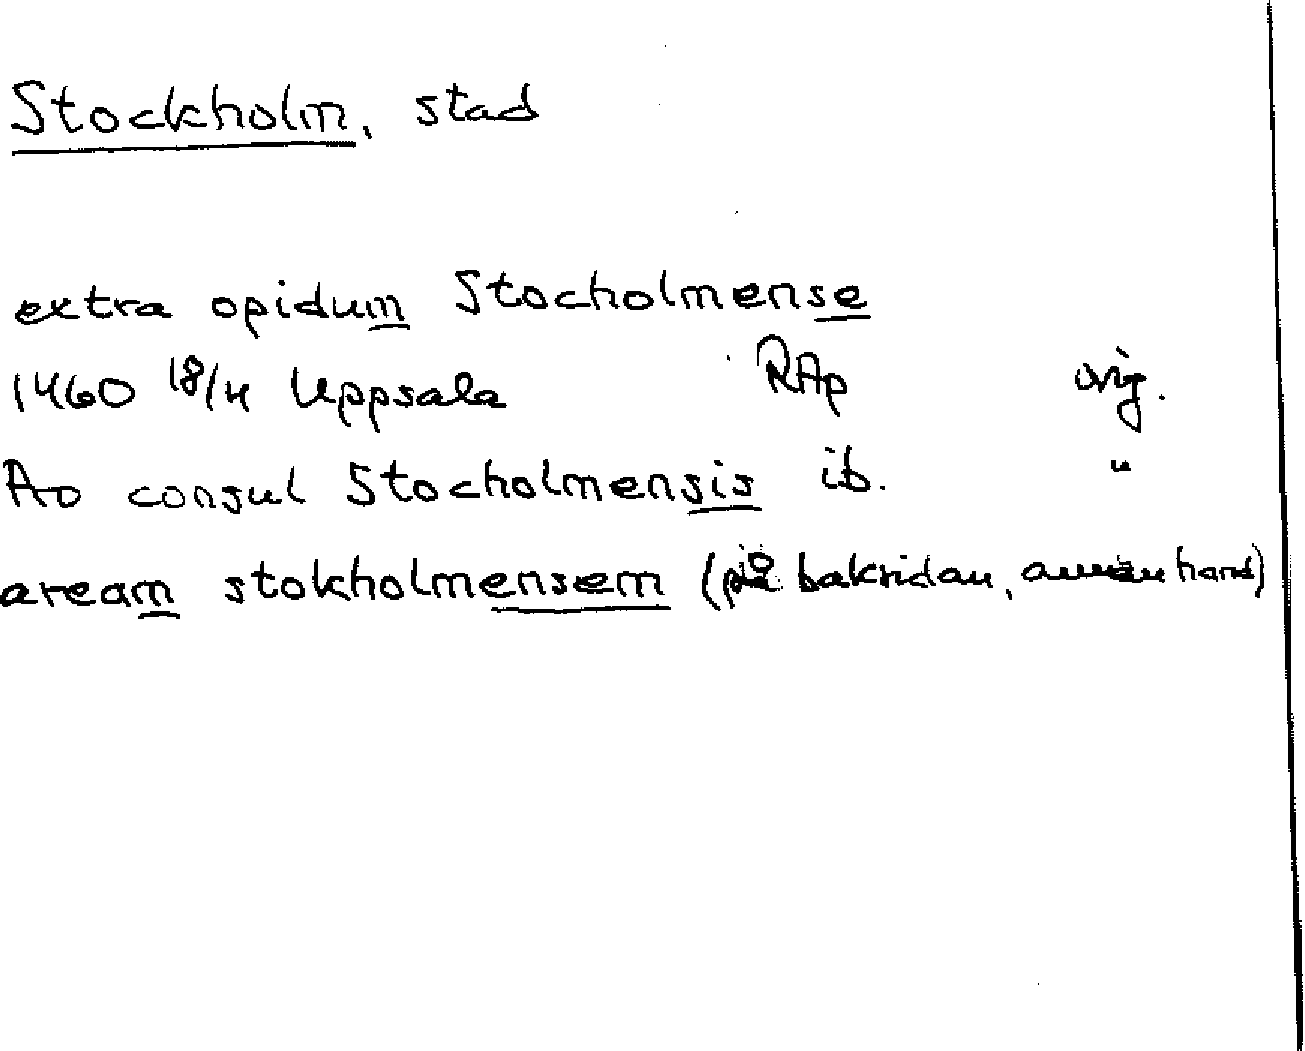 Stockholm, stad
extra opidum Stocholmense
1460 18/4 Uppsala RAp orig.
Ao consul Stocholmensis ib. "
aream stokholmensem (på baksidan, annan hand)